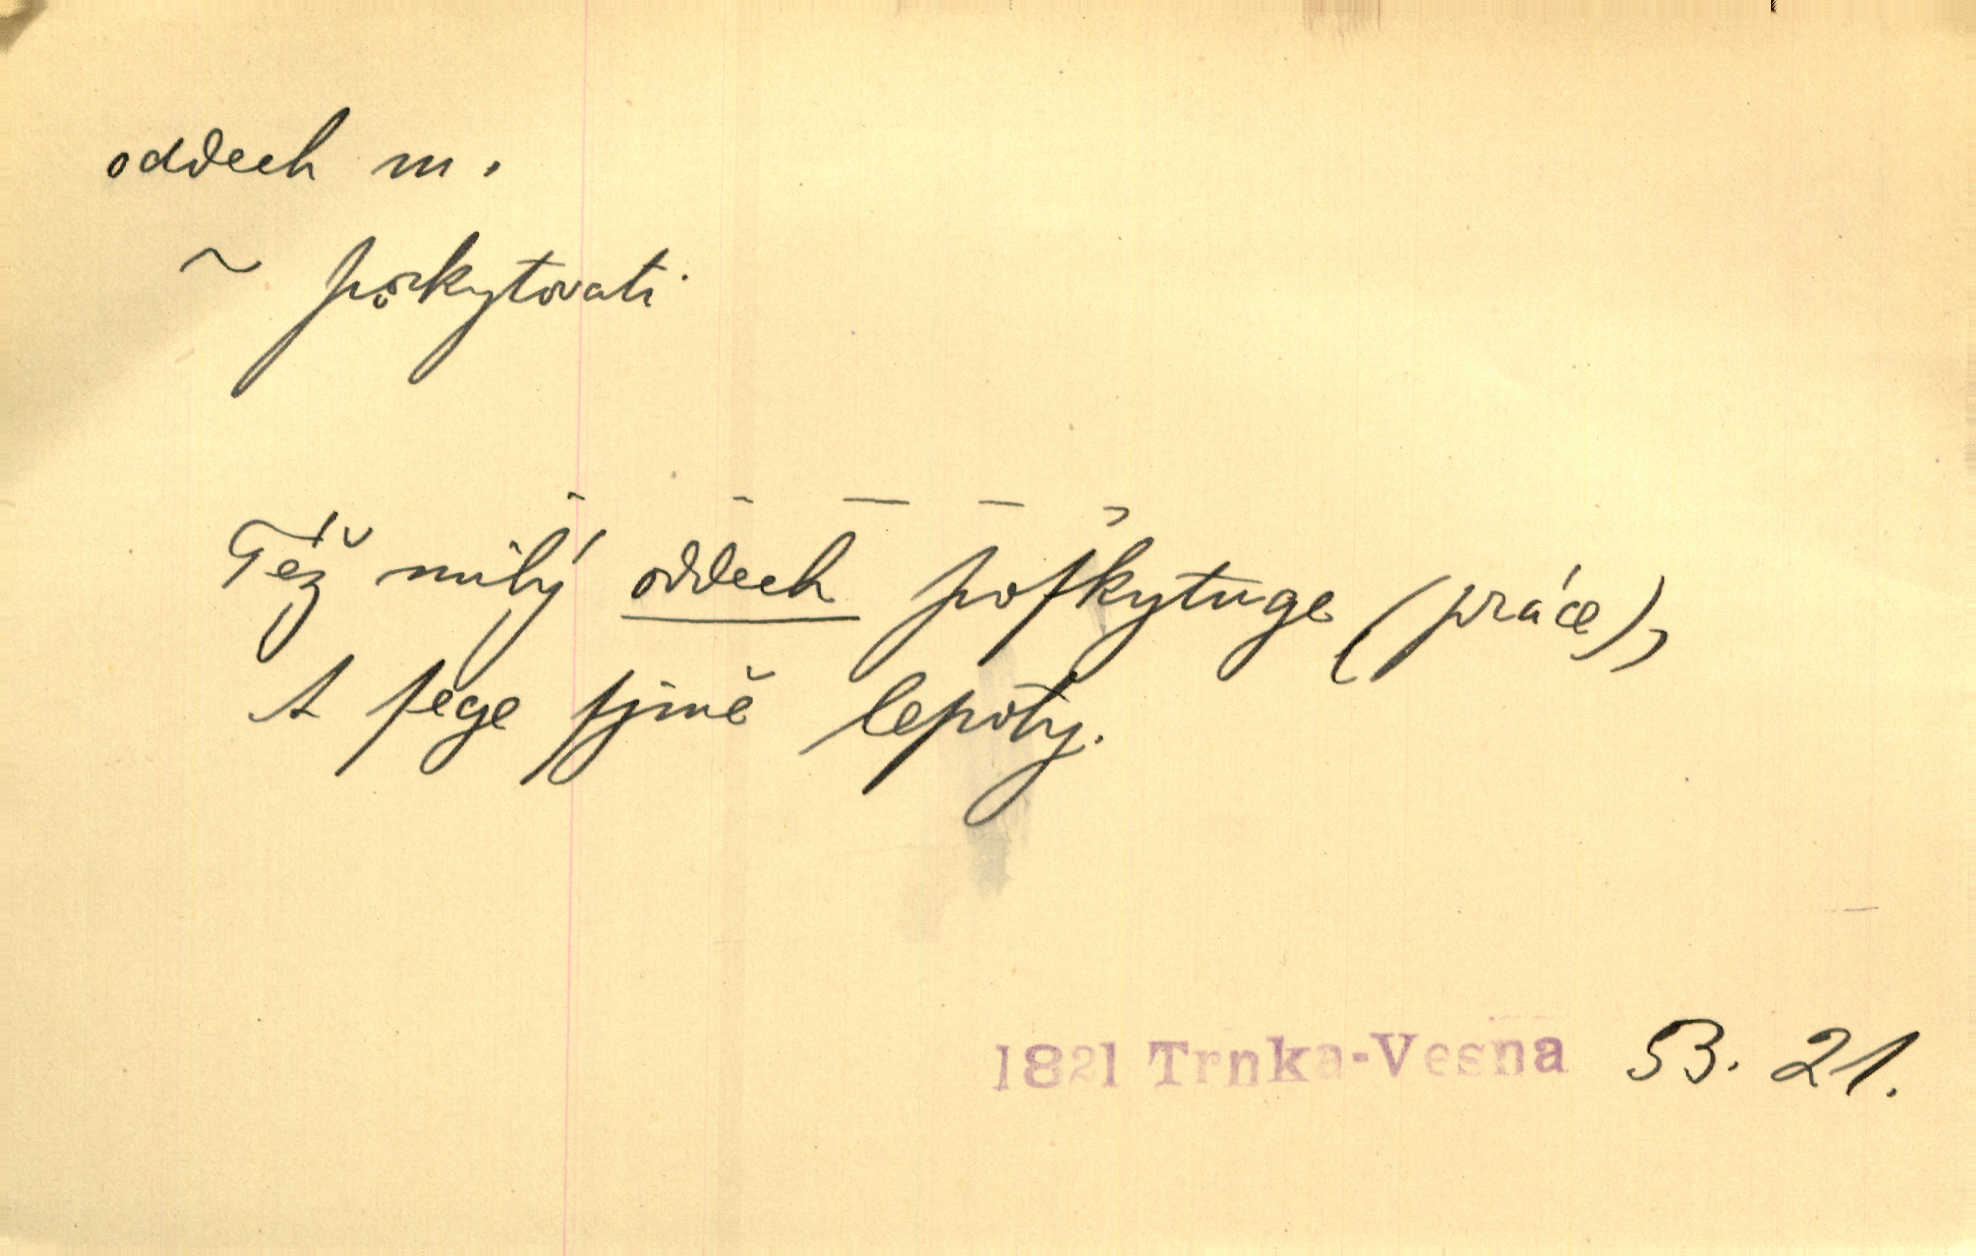 oddech m.
~ poskytovati
Též milý oddech poſkytuge (práce),
A ſege ſjmě lepoty.
1821 Trnka-Vesna 53. 21.